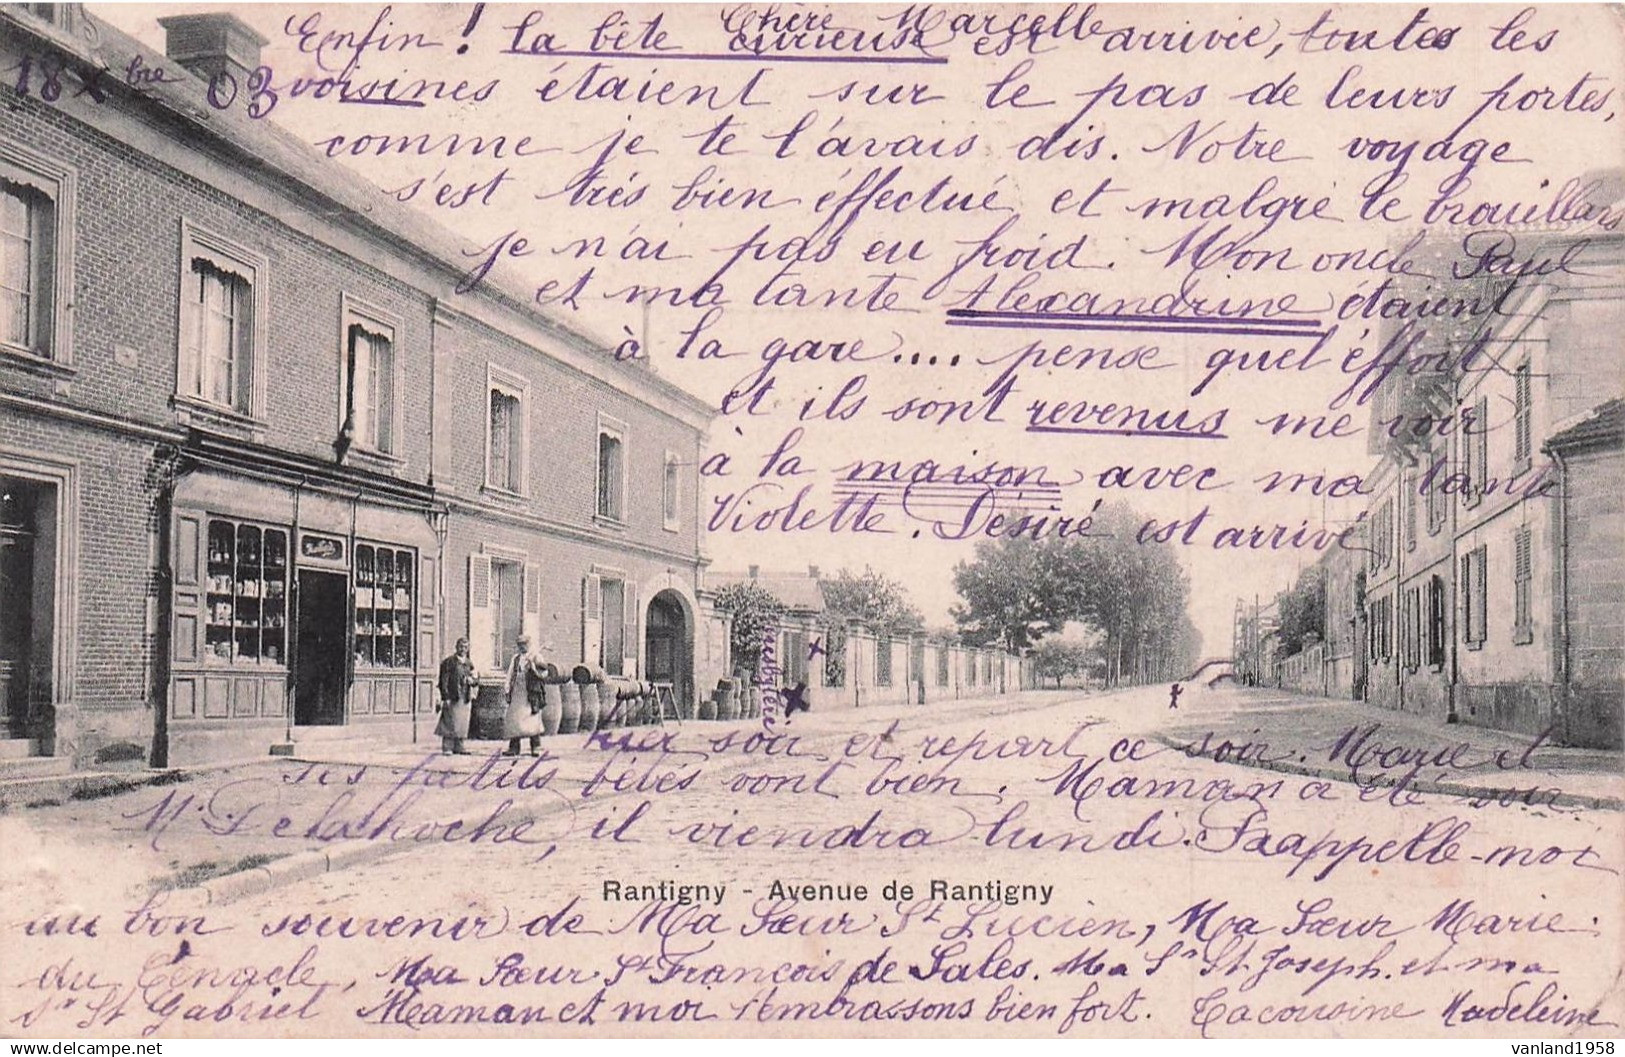 Chère Marcelle
18 Xbre 03
Enfin! la bête curieuse est arrivée, toutes les
voisines étaient sur le pas de leurs portes,
comme je te l'avais dis. Notre voyage
s'est très bien éffectué et malgré le brouillard
je n'ai pas eu froid. Mon oncle Paul
et ma tante Alexandrine étaient
à la gare.... pense quel éffort
et ils sont revenus me voir
à la maison avec ma tante
Violette. Désiré est arrivé
hier soir et repart ce soir. Marie et
ses petits bébés vont bien. Maman a été voir
Mr Delahoche, il viendra lundi. Rappelle-moi
Rantigny - Avenue de Rantigny
au bon souvenir de Ma Sœur St Lucien, Ma Sœur Marie
du Cénacle, Ma Sœur St François de Sales. Ma Sr St Joseph. et ma
Sr St Gabriel Maman et moi t'embrassons bien fort. Ta cousine Madeleine
vanland1958